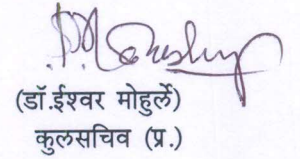 (डॉ.ईश्वर मोहुर्ले)
कुलसचिव (प्र.)